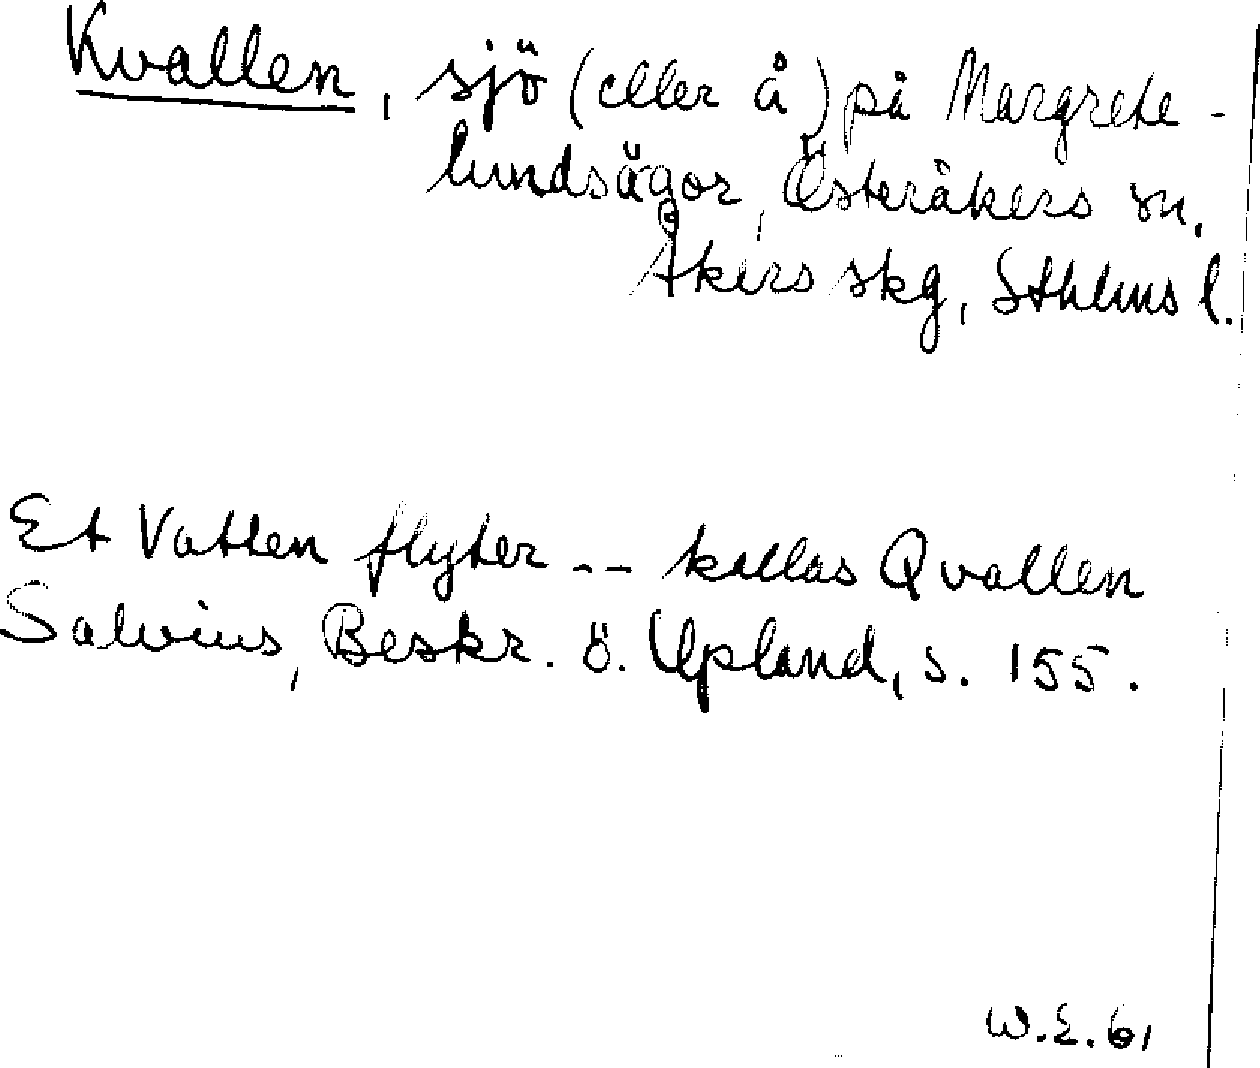 Kvallen, sjö (eller å) på Margrete-
lundsägor, Österåkers sn,
Åkers skg, Sthlms l.
Et Vatten flyter -- kallas Qvallen
Salvius, Beskr. ö. Upland, s. 155.
W.E. 61